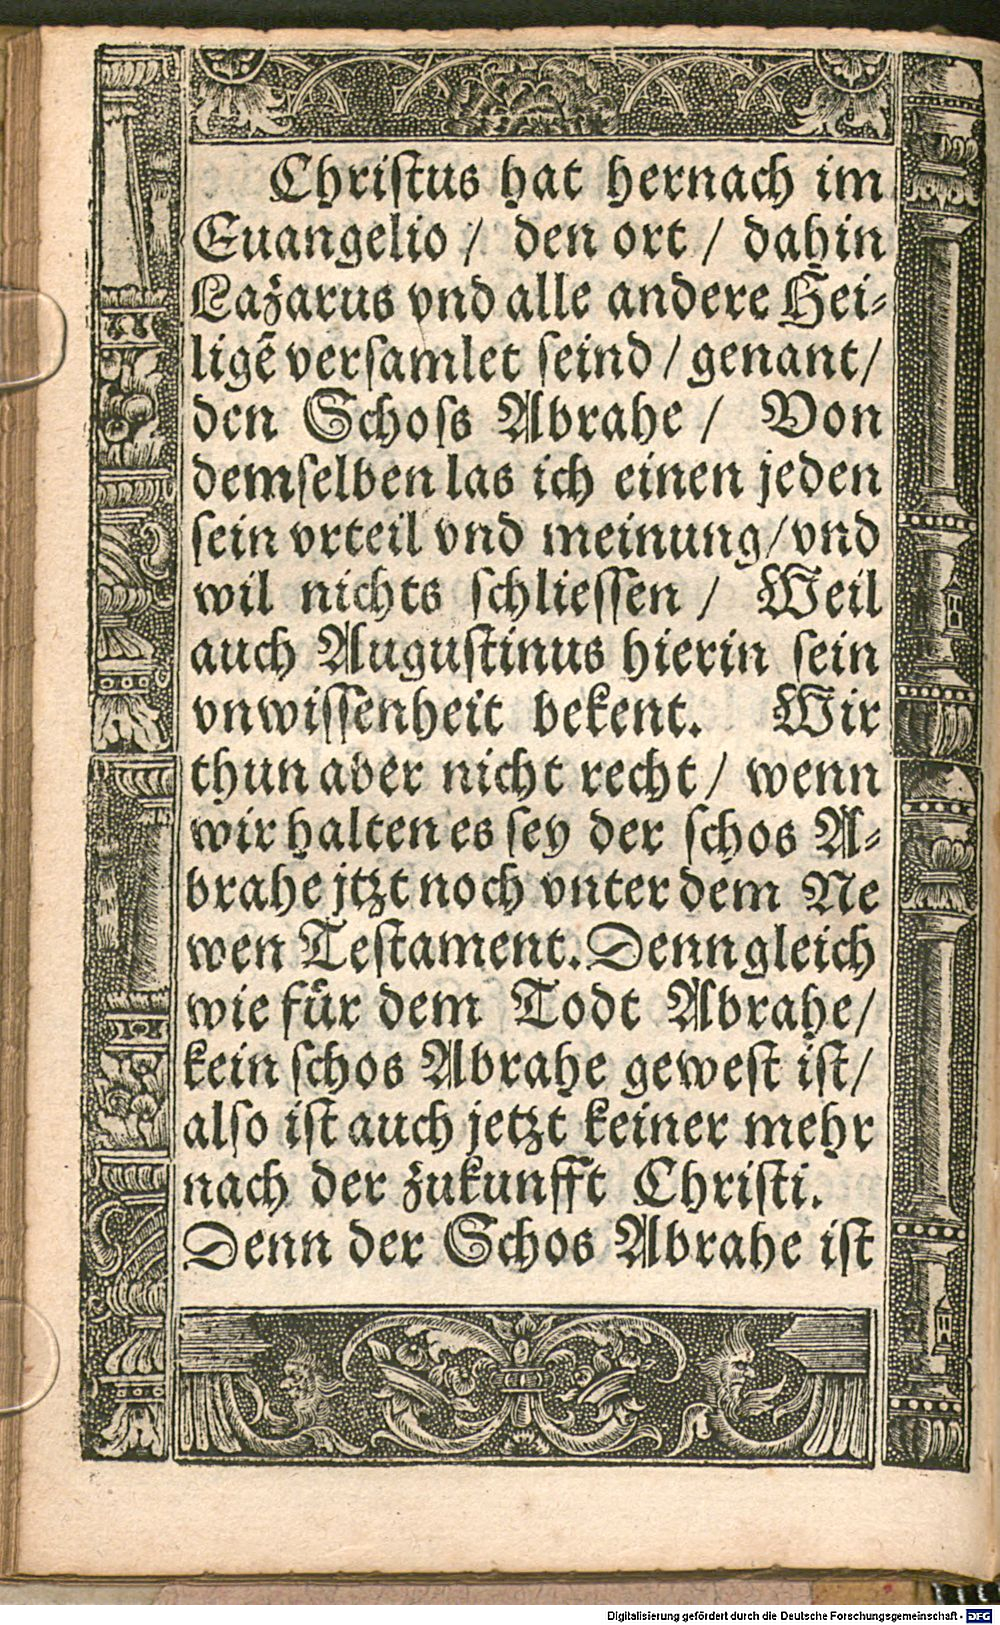 Chriſtus hat hernach im
Euangelio / den ort / dahin
Lazarus vnd alle andere Hei⸗
ligē verſamlet ſeind / genant /
den Schoſs Abrahe / Von
demſelben las ich einen jeden
ſein vrteil vnd meinung / vnd
wil nichts ſchlieſſen / Weil
auch Auguſtinus hierin ſein
vnwiſſenheit bekent. Wir
thun aber nicht recht / wenn
wir halten es ſey der ſchos A⸗
brahe jtzt noch vnter dem Ne
wen Teſtament. Denn gleich
wie für dem Todt Abrahe /
kein ſchos Abrahe geweſt iſt /
alſo iſt auch jetzt keiner mehr
nach der zukunfft Chriſti.
Denn der Schos Abrahe iſt
Digitalisierung gefördert durch die Deutsche Forschungsgemeinschaft - DFG